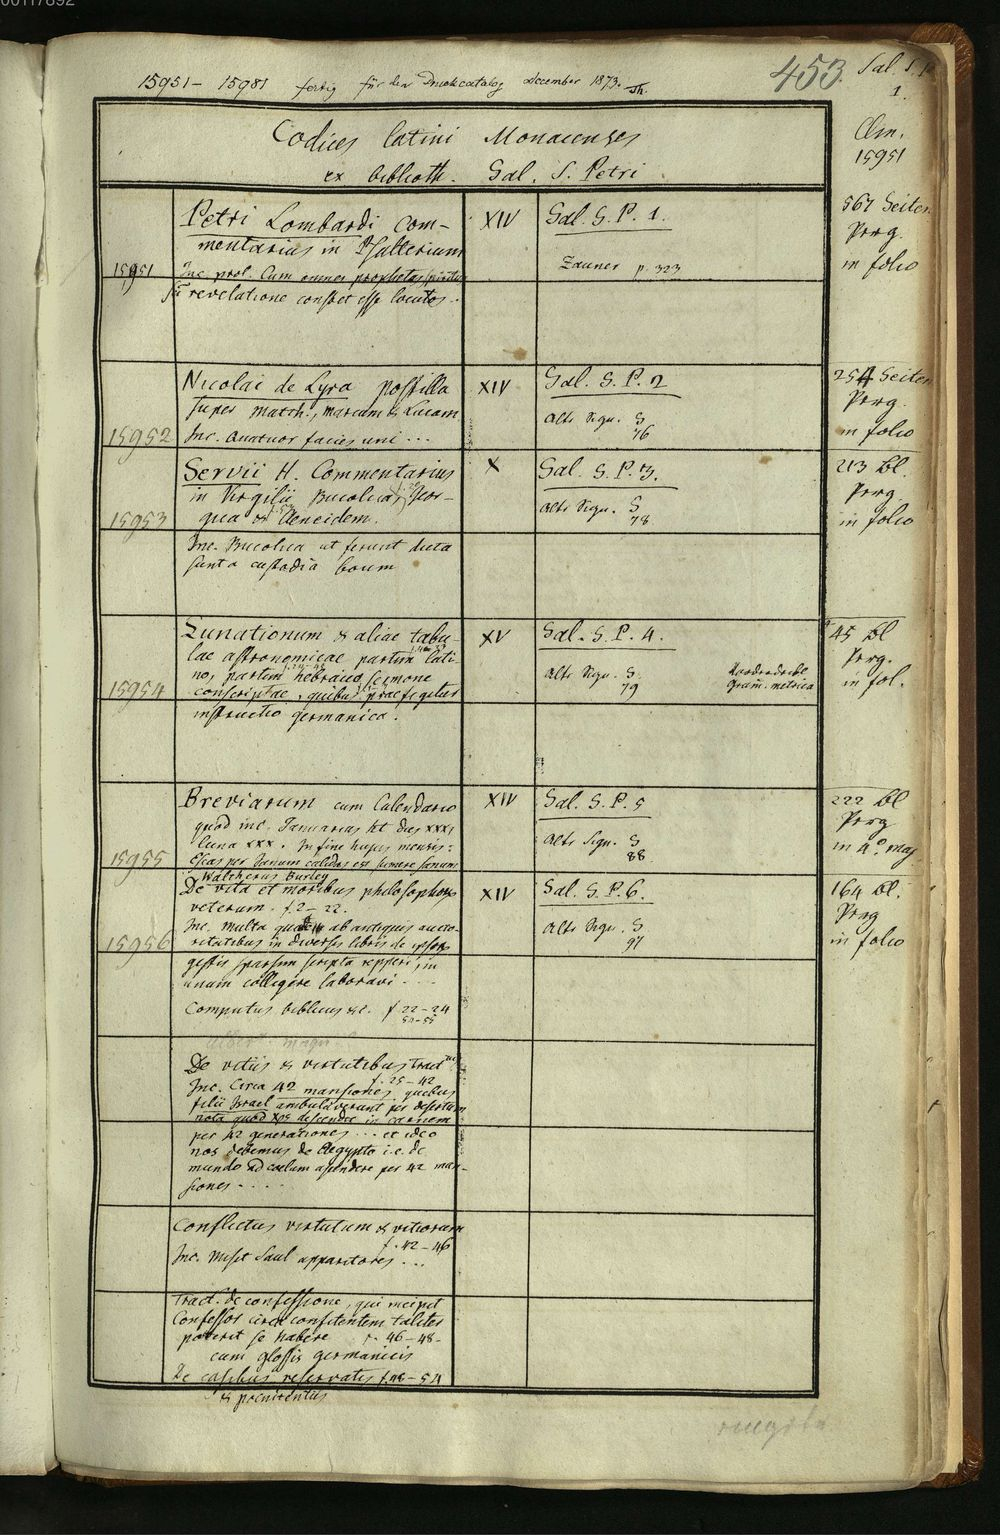 00117892
15951 – 15981 fertig für den Druckcatalog December 1873. Th.
453.
Sal. S. P.
1.
Codices latini Monacenses
ex biblioth. Sal. S. Petri
Clm.
15951
Petri Lombardi com-
mentarius in Psalterium
15951
Inc. prol. Cum omnes prophetas spiritus
sci revelatione constet esse locutos..
XIV
Sal. S. P. 1.
Zauner p. 323
567 Seiten
Perg.
in folio
Nicolai de Lyra postilla
super Matth., Marcum & Lucam
15952
Inc. Quatuor facies uni ...
XIV
Sal. S. P. 2
Alte Sign. S
76
254 Seiten
Perg.
in folio
Servii H. Commentarius
in Virgilii Bucolica, Geor-
15953
gica & Aeneidem.
Inc. Bucolica ut ferunt dicta
sunt a custodia boum
X
Sal. S. P. 3.
Alte Sign. S
78
213 Bl.
Perg.
in folio
Lunationum & aliae tabu-
lae astronomicae partim lati-
no, partim hebraeo sermone
15954
conscriptae, quibus praefigitur
instructio germanica.
XV
Sal. S. P. 4.
Alte Sign. S.
79
Gram. metrica
45 Bl
Perg.
in fol.
Breviarum cum Calendario
quod inc. Januarius ht dies XXXI
luna XXX. In fine hujus mensis:
15955
Escas per Janum calidas est sumere sanum
XIV
Sal. S. P. 5
Alte Sign. S
88.
222 Bl
Perg
in 4o. maj
Waltherus Burley
De vita et moribus philosophor.
veterum. f. 2 – 22.
Inc. Multa quidem ab antiquis aucto-
15956
ritatibus in diversis libris de ipsor.
gestis sparsim scripta repperi, in
unum colligere laboravi ....
Computus biblicus &c. f 22 – 24
54–55
XIV
Sal. S. P. 6.
Alte Sign. S
97
164 Bl.
Prg
in folio
albert. magn.
De vitiis & virtutibus Tract
f. 25 – 42
Inc. Circa 42 mansiones quibus
filii Israel ambulaverunt per desertum
nota quod Xps descendit in carnem
per 42 generationes ... et ideo
nos debemus de Aegypto i. e. de
mundo ad coelum ascendere per 42 man-
siones .....
Conflictus virtutum & vitiorum
f. 42 – 46
Inc. Misit Saul apparitores ...
Tract. de confessione, qui incipit
Confessor circa confitentem taliter
poterit se habere f. 46 – 48 –
cum glossis germanicis
De casibus reservatis f. 48 – 54
& poenitentiis